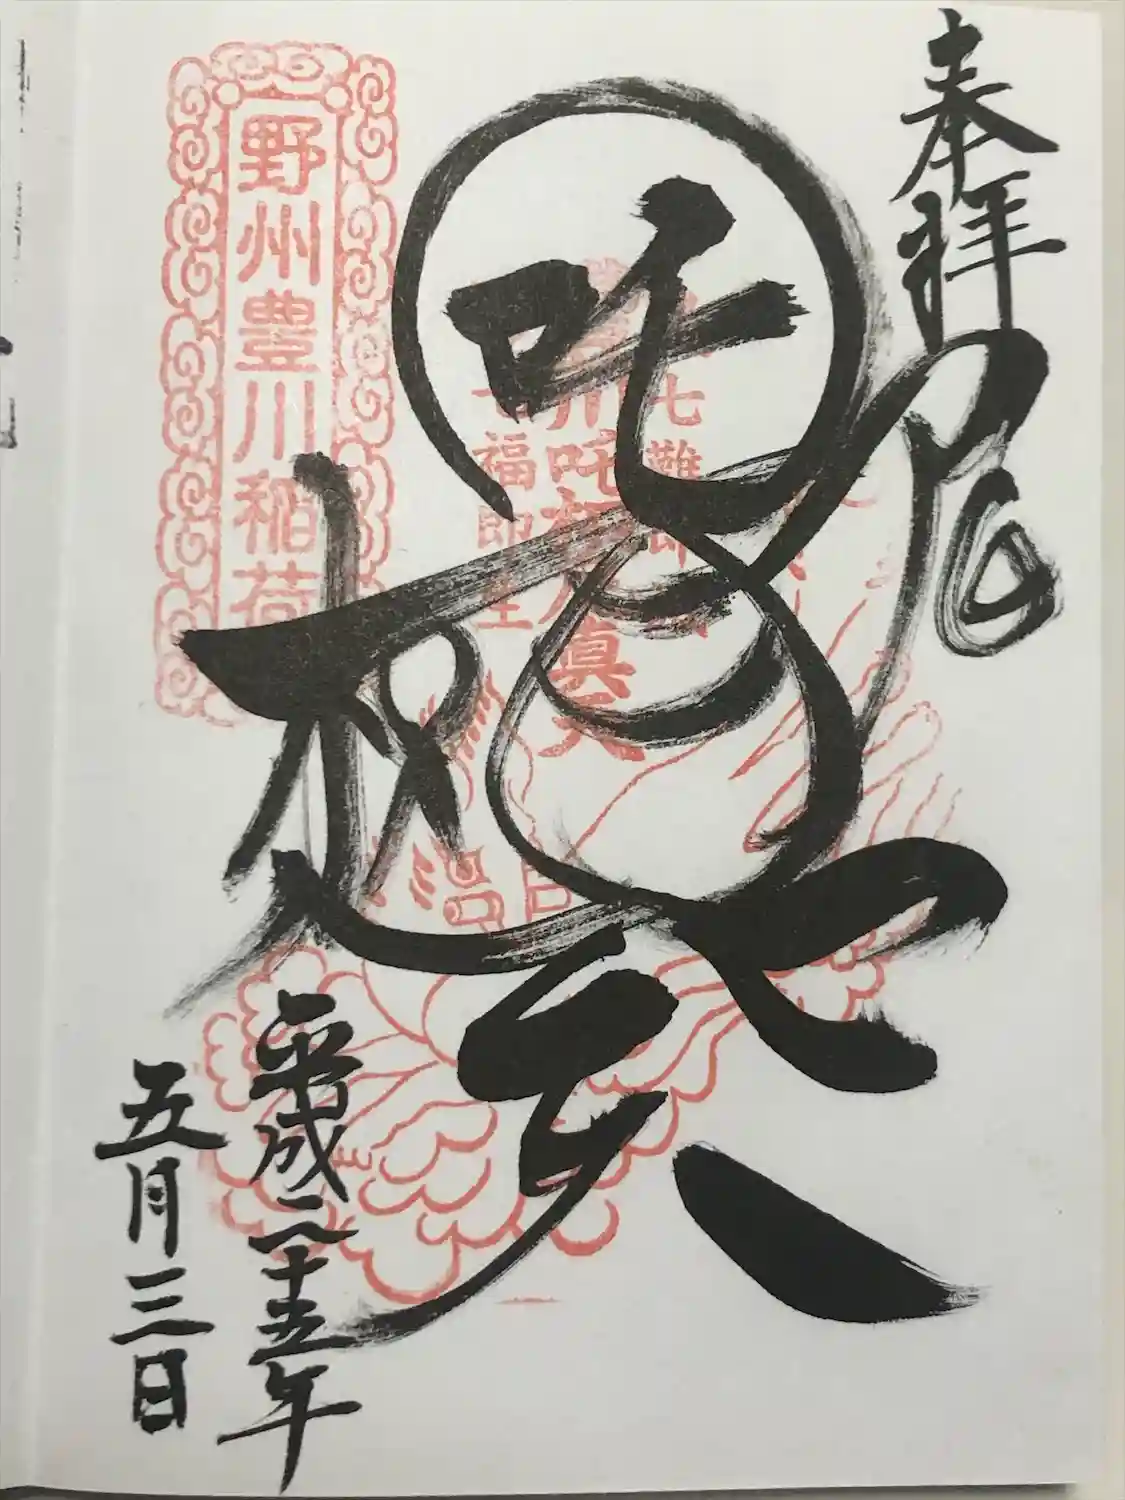 奉拝
吒枳尼真天
七難即滅
吒枳尼真天
七福即生
野州豊川稲荷
平成二十五年
五月三日